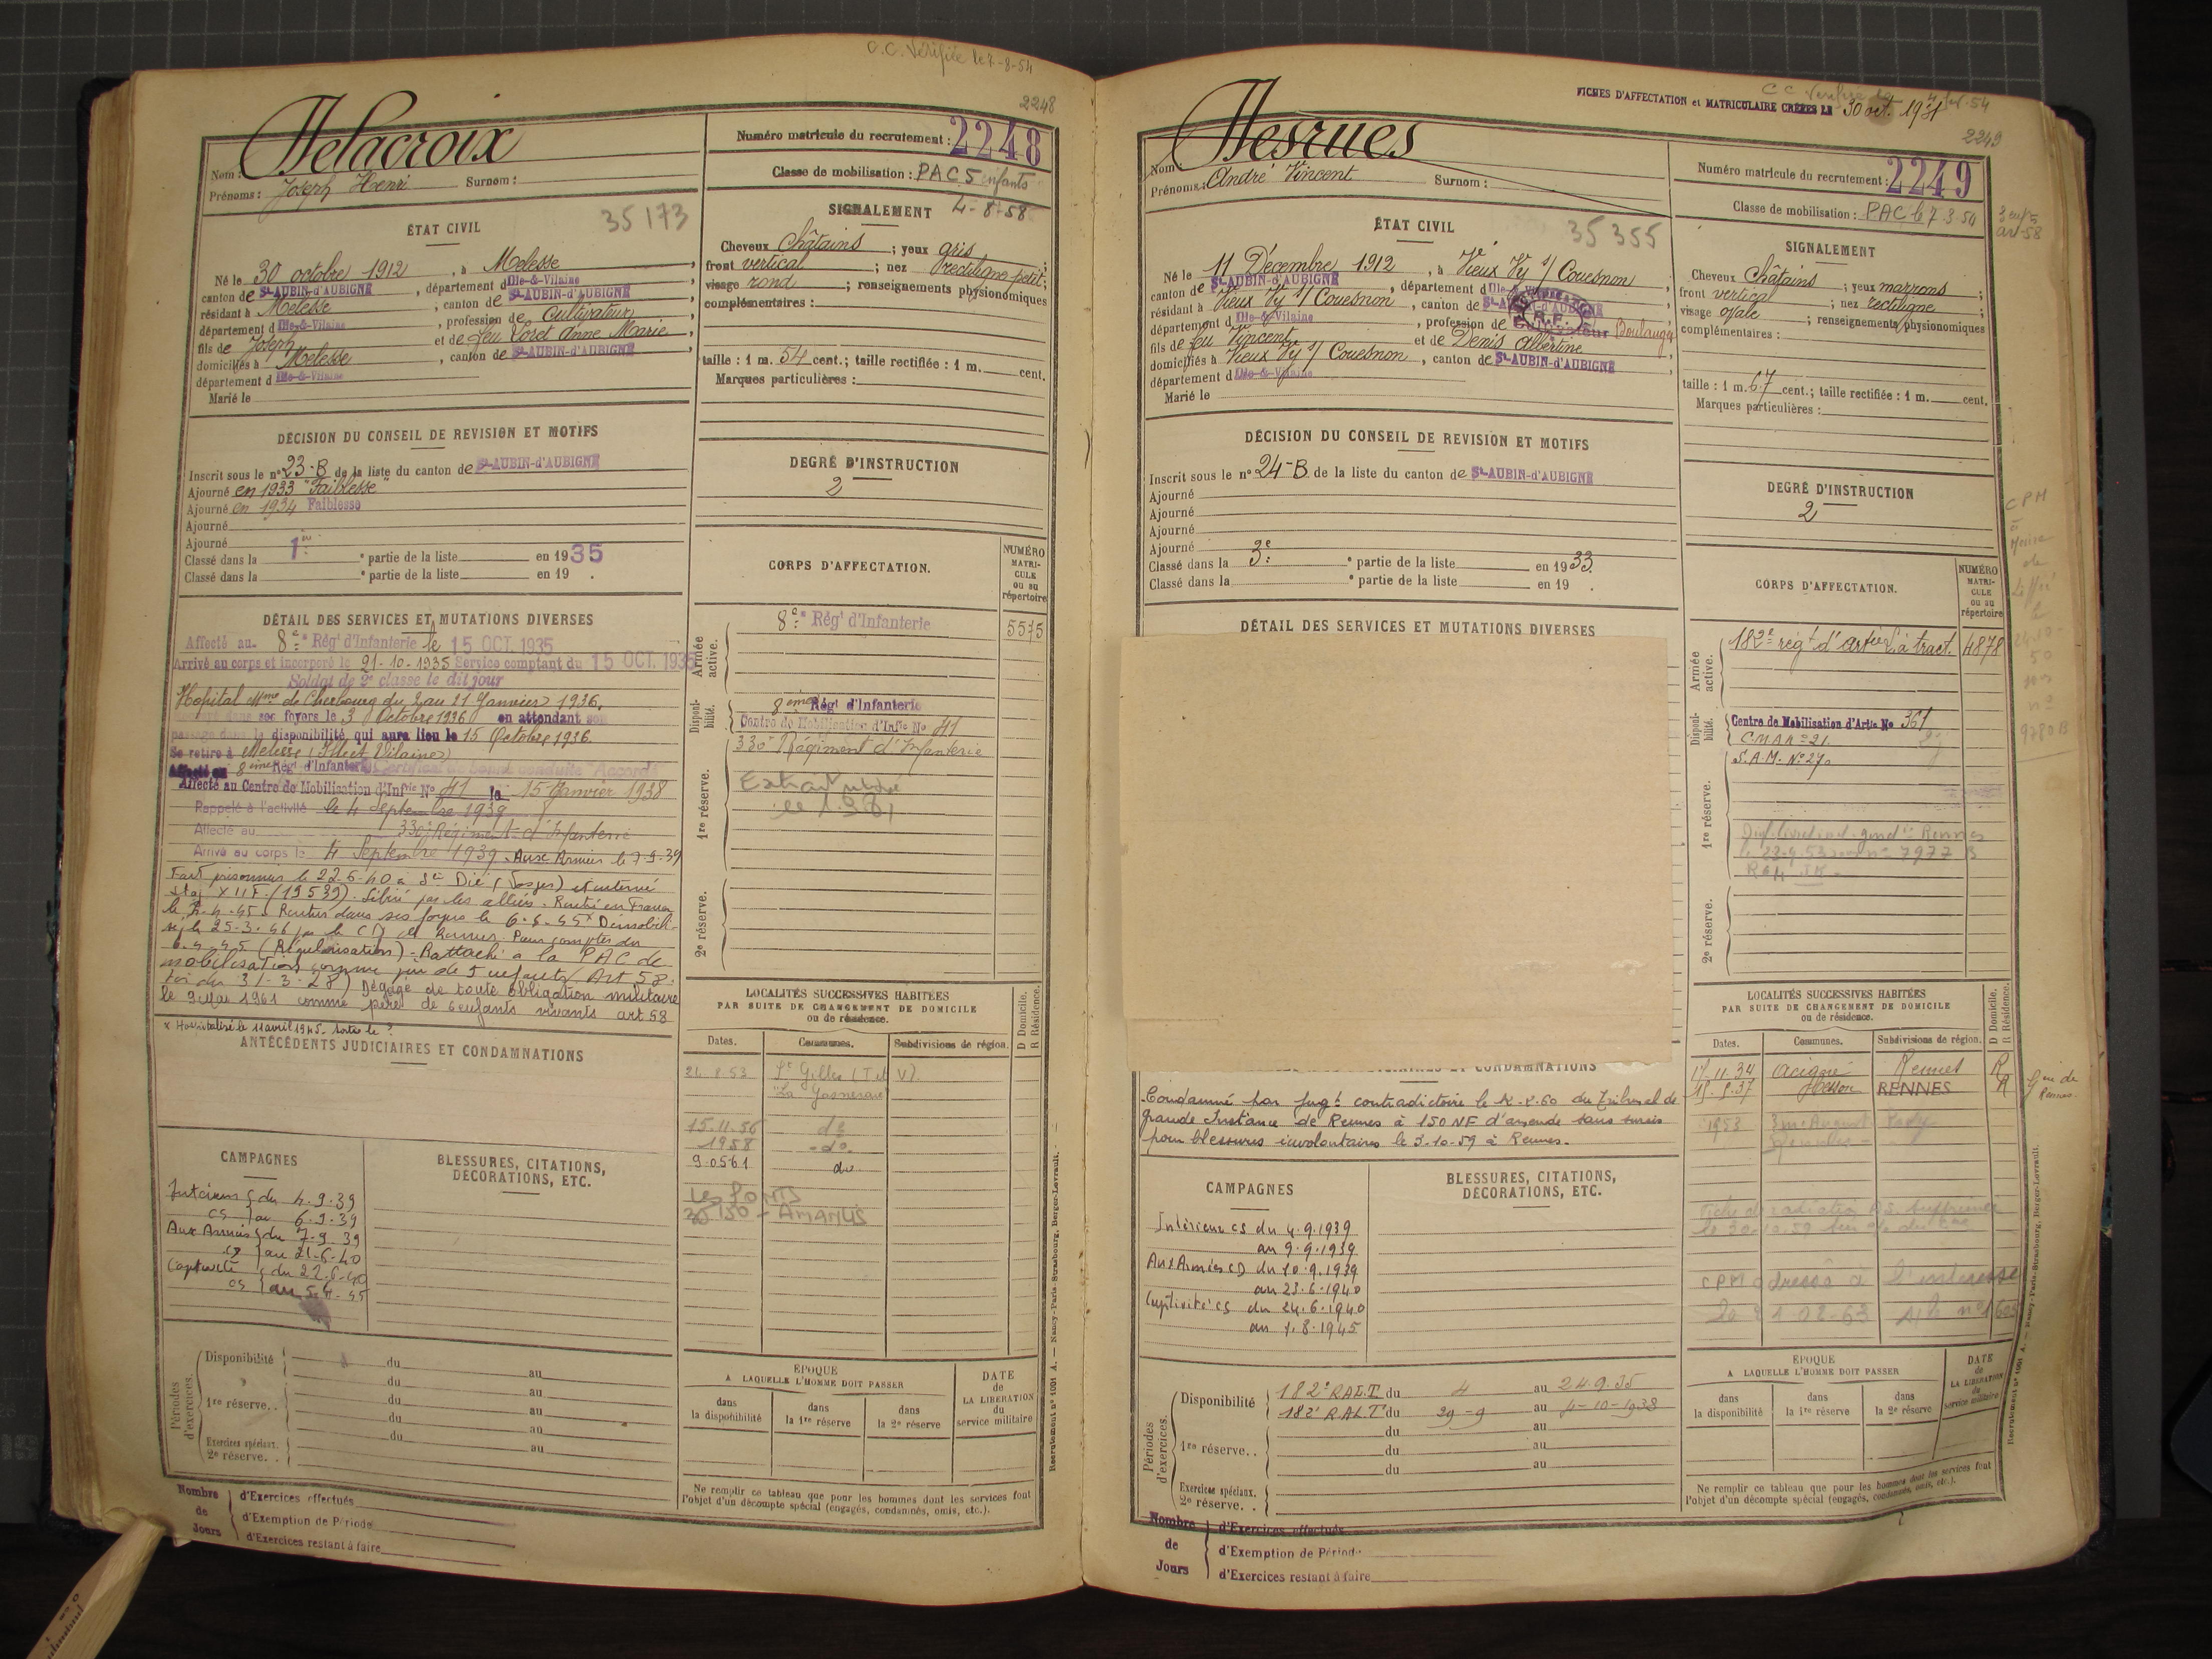 C.C. Vérifiée le 7-8-54
2248
Delacroix
Nom :
Prénoms : Joseph Henri Surnom :
Numéro matricule du recrutement : 2248
Classe de mobilisation : PAC 5 enfants
4-8-58
ÉTAT CIVIL
35173
Né le 30 octobre 1912, à Melesse,
canton de St-AUBIN-d'AUBIGNÉ, département d Ille-&-Vilaine
résidant à Melesse, canton de St-AUBIN-d'AUBIGNÉ,
département d Ille-&-Vilaine, profession de Cultivateur,
fils de Joseph et de feu Loret Anne Marie,
domiciliés à Melesse, canton de St-AUBIN-d'AUBIGNÉ,
département d Ille-&-Vilaine
Marié le
SIGNALEMENT
Cheveux Châtains ; yeux gris ;
front vertical ; nez rectiligne petit ;
visage rond ; renseignements physionomiques
complémentaires :
taille : 1 m. 54 cent.; taille rectifiée : 1 m. cent.
Marques particulières :
DÉCISION DU CONSEIL DE REVISION ET MOTIFS
Inscrit sous le n° 23-B de la liste du canton de St-AUBIN-d'AUBIGNÉ
Ajourné en 1933 "Faiblesse"
Ajourné en 1934 Faiblesse
Ajourné
Ajourné
Classé dans la 1re partie de la liste en 1935
Classé dans la e partie de la liste en 19 .
DEGRÉ D'INSTRUCTION
2
DÉTAIL DES SERVICES ET MUTATIONS DIVERSES
Affecté au 8e Régt d'Infanterie le 15 OCT. 1935
Arrivé au corps et incorporé le 21-10-1935 Service comptant du 15 OCT. 1935
Soldat de 2e classe le dit jour
Hôpital Mme de Cherbourg du 2 au 21 Janvier 1936.
dans ses foyers le 3 Octobre 1936 en attendant son
passage dans la disponibilité, qui aura lieu le 15 Octobre 1936.
Se retire à Melesse (Ille et Vilaine)
Affecté au 8ème Régt d'Infanterie Certificat de bonne conduite "Accordé"
Affecté au Centre de Mobilisation d'Infie No 41 le 15 Janvier 1938
Rappelé à l'activité le 4 septembre 1939
Affecté au 330e Régiment d'Infanterie
Arrivé au corps le 4 Septembre 1939. Aux Armées le 7-9-39
Fait prisonnier le 22-6-40 à St Dié (Vosges) et interné
Stal XII F (19539). Libéré par les alliés. Rentré en France
le 5-4-45. Rentré dans ses foyers le 6-4-45 x Démobili-
sé le 25-3-46 par le CD de Rennes. Pour compter du
6-4-45 (Régularisation). Rattaché à la PAC de
mobilisation comme père de 5 enfants (Art 58.
loi du 31-3-28) Dégagé de toute obligation militaire
le 9 Mai 1961 comme père de 6 enfants vivants art 58
x Hospitalisé le 11 avril 1945. Sortie le ?
CORPS D'AFFECTATION.
NUMÉRO MATRI-CULE ou au répertoire
Armée active.
8e Régt d'Infanterie 5575
Disponi-bilité.
8ème Régt d'Infanterie
Centre de Mobilisation d'Infie No 41
1re réserve.
330e Régiment d'Infanterie
2e réserve.
ANTÉCÉDENTS JUDICIAIRES ET CONDAMNATIONS
LOCALITÉS SUCCESSIVES HABITÉES
PAR SUITE DE CHANGEMENT DE DOMICILE
ou de résidence.
D Domicile. R Résidence.
Dates. Communes. Subdivisions de région.
21.8.53 St Gilles (I et V).
15.11.56 do
1958 -do-
9.05.61 do
LES PONTS
30130 - AMANLIS
CAMPAGNES
BLESSURES, CITATIONS,
DÉCORATIONS, ETC.
Intérieur du 4.9.39
CS au 6.9.39
Aux Armées du 7.9.39
CD au 21-6-40
Captivité du 22-6-40
CS au 5.4-45
Périodes d'exercices.
Disponibilité du au
du au
1re réserve. . du au
du au
du au
Exercices spéciaux.
2e réserve. . du au
ÉPOQUE
A LAQUELLE L'HOMME DOIT PASSER
dans la disponibilité
dans la 1re réserve
dans la 2e réserve
DATE de LA LIBÉRATION du service militaire
Ne remplir ce tableau que pour les hommes dont les services font
l'objet d'un décompte spécial (engagés, condamnés, omis, etc.).
Nombre de Jours
d'Exercices effectués
d'Exemption de Période
d'Exercices restant à faire
Recrutement n° 1001 A. — Nancy-Paris-Strasbourg, Berger-Levrault.
FICHES D'AFFECTATION et MATRICULAIRE CRÉÉES LE 30 oct. 1951
2249
Desrues
Nom :
Prénoms : André Vincent Surnom :
Numéro matricule du recrutement : 2249
Classe de mobilisation : PAC le 7.3.50
ÉTAT CIVIL
35355
Né le 11 Décembre 1912, à Vieux Vy s/ Couesnon,
canton de St-AUBIN-d'AUBIGNÉ, département d Ille-&-Vilaine
résidant à Vieux Vy s/ Couesnon, canton de St-AUBIN-d'AUBIGNÉ
département d Ille-&-Vilaine, profession de Cultivateur Boulanger
fils de feu Vincent et de Denis Albertine
domiciliés à Vieux Vy s/ Couesnon, canton de St-AUBIN-d'AUBIGNÉ,
département d Ille-&-Vilaine
Marié le
SIGNALEMENT
Cheveux Châtains ; yeux marrons ;
front vertical ; nez rectiligne ;
visage ovale ; renseignements physionomiques
complémentaires :
taille : 1 m. 67 cent.; taille rectifiée : 1 m. cent.
Marques particulières :
DÉCISION DU CONSEIL DE REVISION ET MOTIFS
Inscrit sous le n° 24-B de la liste du canton de St-AUBIN-d'AUBIGNÉ
Ajourné
Ajourné
Ajourné
Ajourné
Classé dans la 3e partie de la liste en 1933.
Classé dans la e partie de la liste en 19 .
DEGRÉ D'INSTRUCTION
2
DÉTAIL DES SERVICES ET MUTATIONS DIVERSES
CORPS D'AFFECTATION.
NUMÉRO MATRI-CULE ou au répertoire
Armée active.
182e régt d'artie à tract. 4878
Disponi-bilité.
Centre de Mobilisation d'Artie No 361
C.M.A n° 21.
1re réserve.
S.A.M. No 270
2e réserve.
CONDAMNATIONS
Condamné par jugt contradictoire le 4-2-60 du Tribunal de
grande Instance de Rennes à 150 NF d'amende sans sursis
pour blessures involontaires le 3-10-59 à Rennes.
LOCALITÉS SUCCESSIVES HABITÉES
PAR SUITE DE CHANGEMENT DE DOMICILE
ou de résidence.
D Domicile. R Résidence.
Dates. Communes. Subdivisions de région.
17.11.34 Acigné Rennes R
RENNES R
1953
CPM adressé à l'intéressé
CAMPAGNES
BLESSURES, CITATIONS,
DÉCORATIONS, ETC.
Intérieur CS du 4.9.1939
au 9.9.1939
Aux Armées CD du 10.9.1939
au 23.6.1940
Captivité CS du 24.6.1940
au 1.8.1945
Périodes d'exercices.
Disponibilité 182e RALT du 4 au 24.9.35
182e RALT du 29-9 au 4-10-1938
du au
1re réserve. . du au
du au
Exercices spéciaux.
2e réserve. .
ÉPOQUE
A LAQUELLE L'HOMME DOIT PASSER
dans la disponibilité
dans la 1re réserve
dans la 2e réserve
DATE de LA LIBÉRATION du service militaire
Ne remplir ce tableau que pour les hommes dont les services font
l'objet d'un décompte spécial (engagés, condamnés, omis, etc.).
Nombre de Jours
d'Exercices effectués
d'Exemption de Période
d'Exercices restant à faire
Recrutement n° 1001 A. — Nancy-Paris-Strasbourg, Berger-Levrault.